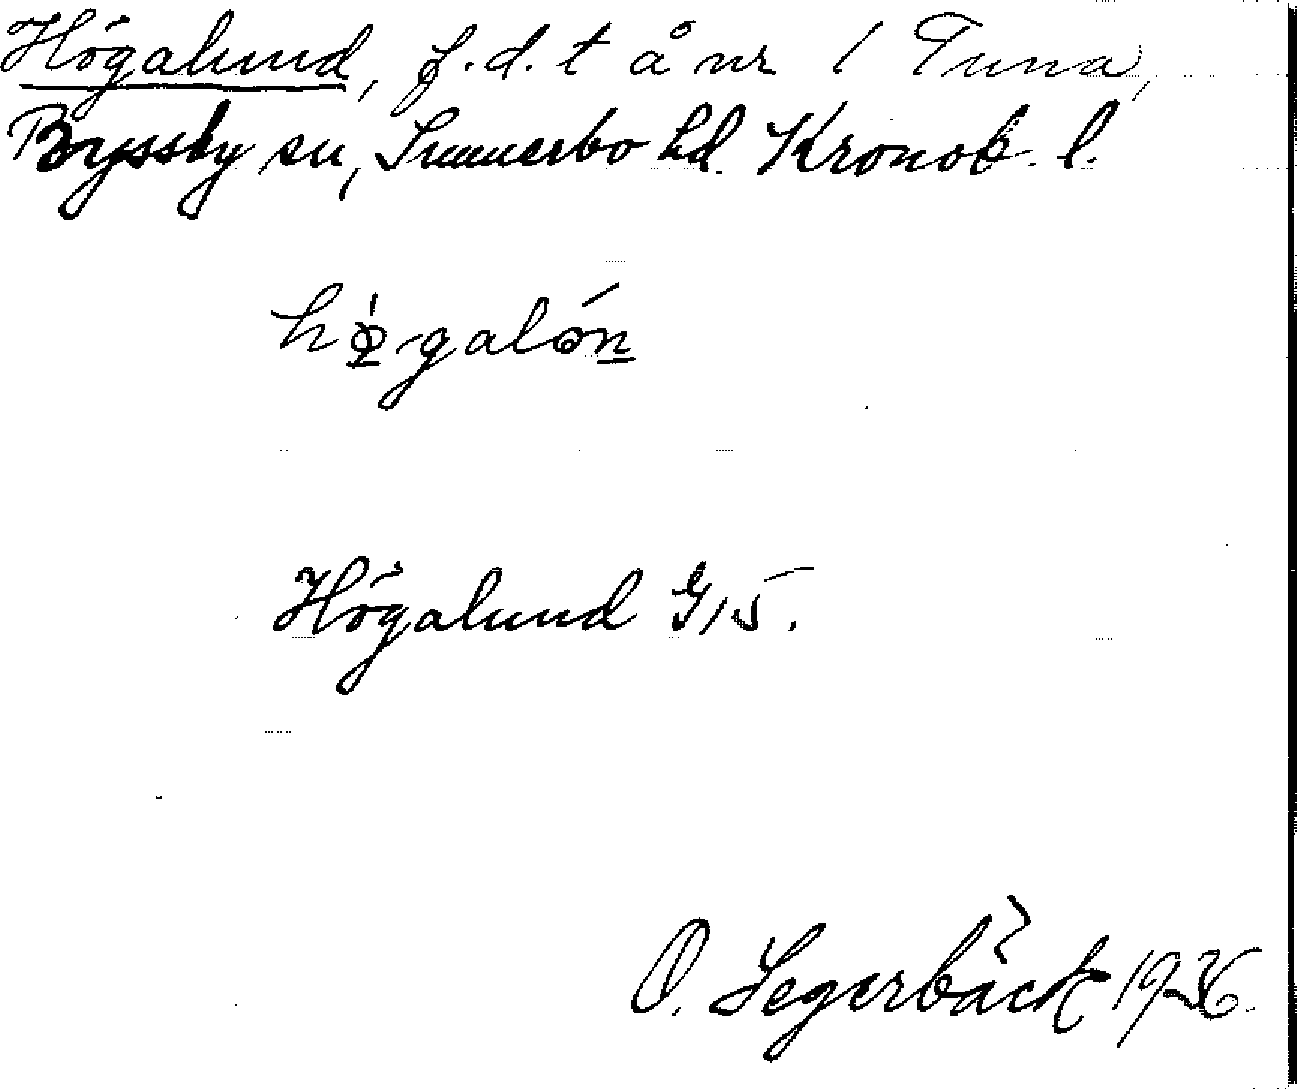 Högalund, f.d. t å nr 1 Tuna,
Ryssby sn, Sunnerbo hd. Kronob. l.
Högalund G15.
O. Segerbäck 1936.